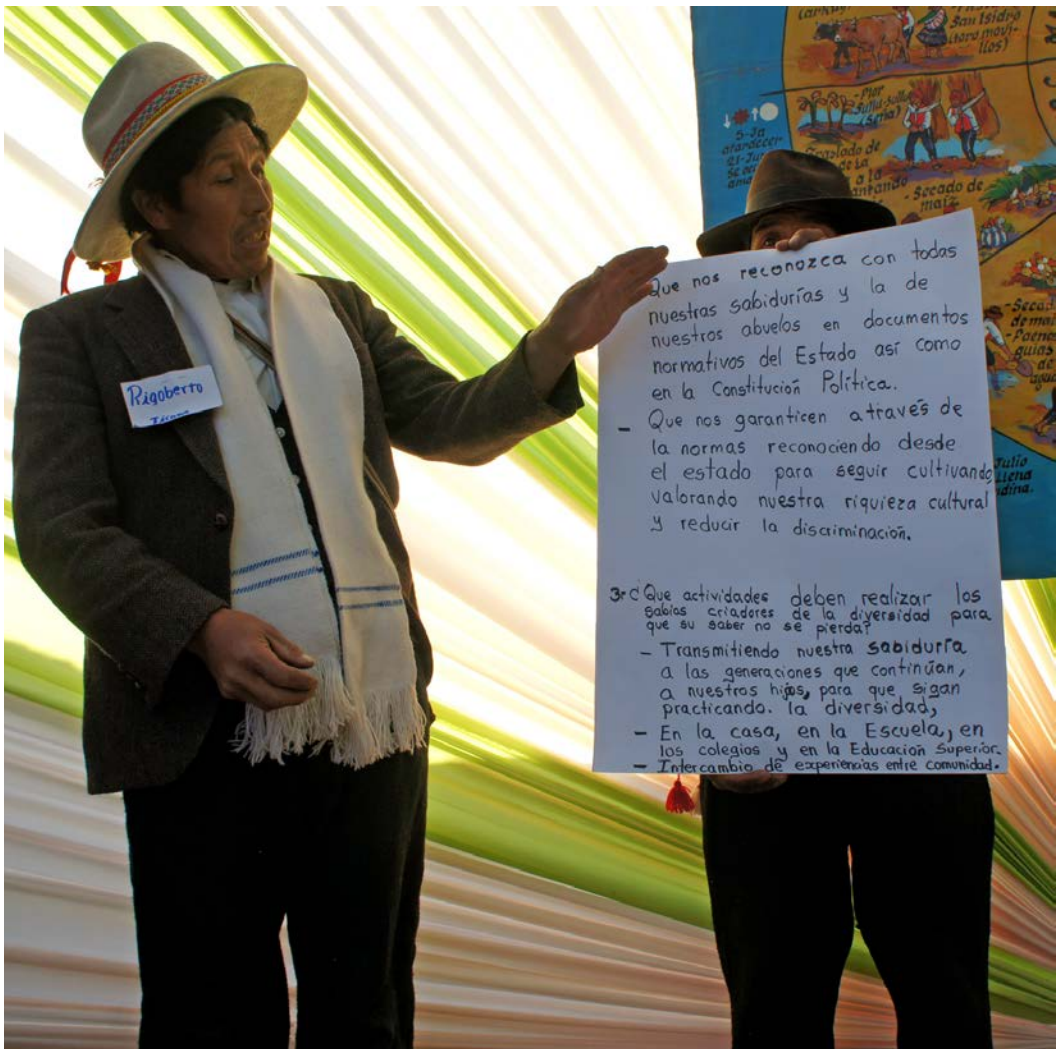 Rigoberto
Que nos reconozca con todas
nuestras sabidurías y la de
nuestros abuelos en documentos
normativos del Estado así como
en la Constitución Política.
- Que nos garanticen a través de
la normas reconociendo desde
el estado para seguir cultivando,
valorando nuestra riquieza cultural
y reducir la discriminación.
3.- ¿Que actividades deben realizar los
sabios criadores de la diversidad para
que su saber no se pierda?
- Transmitiendo nuestra sabiduría
a las generaciones que continúan,
a nuestros hijos, para que sigan
practicando. la diversidad,
- En la casa, en la Escuela, en
los colegios y en la Educación Superior.
- Intercambio de experiencias entre comunidad.
San Isidro
- Secado de
maíz
Julio